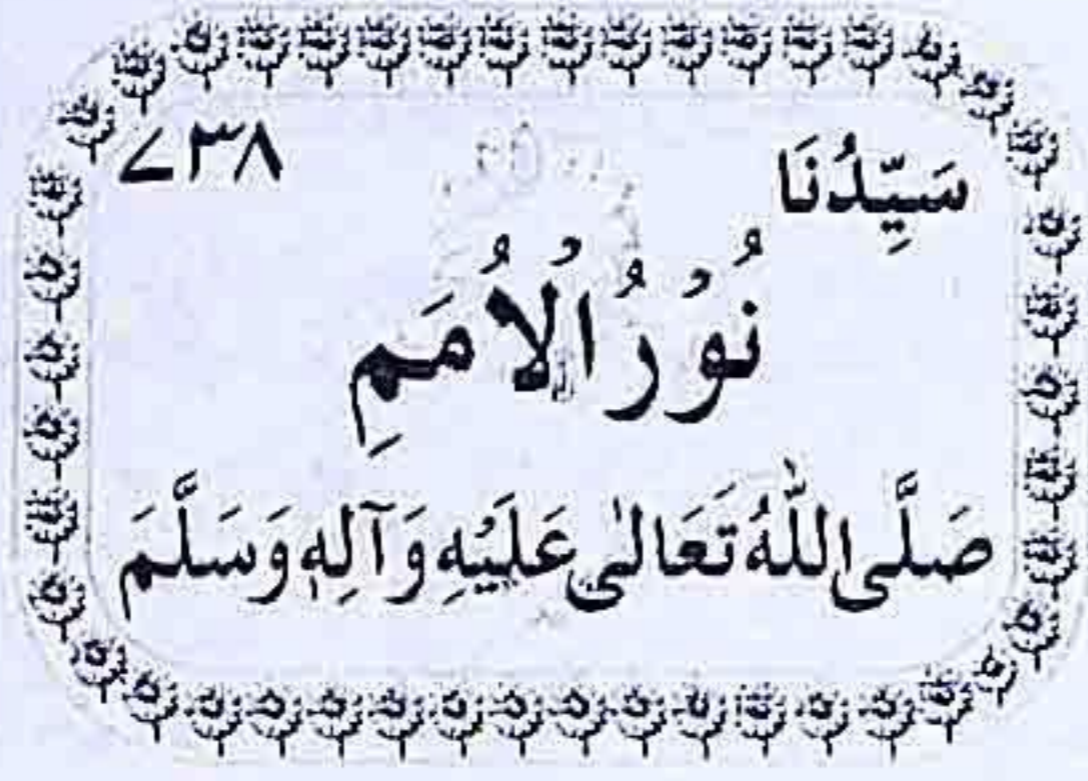 سَيِّدُنَا ۷۳۸
نُوْرُ الْاُمَمِ
صَلَّی اللّٰهُ تَعَالٰی عَلَيْهِ وَآلِهٖ وَسَلَّمَ